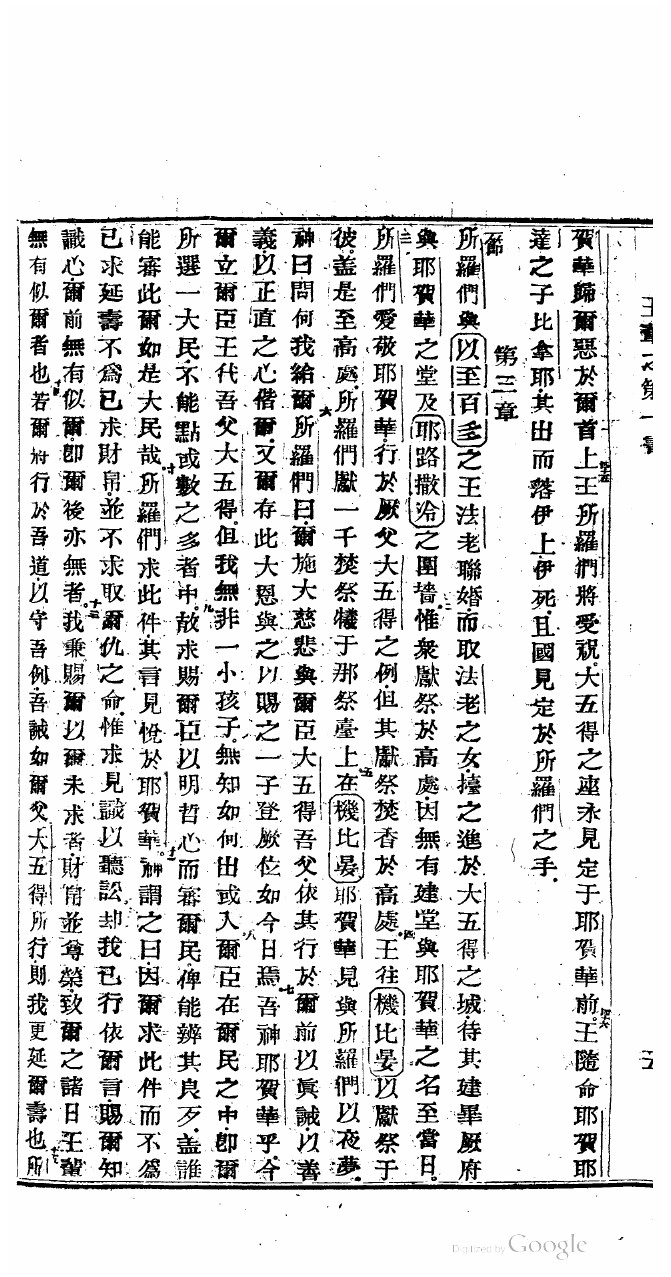 王輩之第一書 五
賀華歸爾惡於爾首上王所羅們將受祝大五得之座永見定于耶賀華前王隨命耶賀耶
達之子比拿耶其出而落伊上伊死且國見定於所羅們之手
第三章
所羅們與以至百多之王法老聯婚而取法老之女擡之進於大五得之城待其建畢厥府
與耶賀華之堂及耶路撒冷之圍墻惟衆獻祭於高處因無有建堂與耶賀華之名至當日
所羅們愛敬耶賀華行於厥父大五得之例但其獻祭焚香於高處王往機比晏以獻祭于
彼蓋是至高處所羅們獻一千焚祭犧于那祭臺上在機比晏耶賀華見與所羅們以夜夢
神曰問何我給爾所羅們曰爾施大慈悲與爾臣大五得吾父依其行於爾前以眞誠以善
義以正直之心偕爾又爾存此大恩與之以賜之一子登厥位如今日焉吾神耶賀華乎今
爾立爾臣王代吾父大五得但我無非一小孩子無知如何出或入爾臣在爾民之中卽爾
所選一大民不能點或數之多者中故求賜爾臣以明哲心而審爾民俾能辨其良歹蓋誰
能審此爾如是大民哉所羅們求此件其言見悅於耶賀華神謂之曰因爾求此件而不爲
已求延壽不爲已求財帛並不求取爾仇之命惟求見識以聽訟却我已行依爾言賜爾知
識心爾前無有似爾卽爾後亦無者我兼賜爾以爾未求者財帛並尊榮致爾之諸日王輩
無有似爾者也若爾將行於吾道以守吾例吾誡如爾父大五得所行則我更延爾壽也所
Digitized by Google